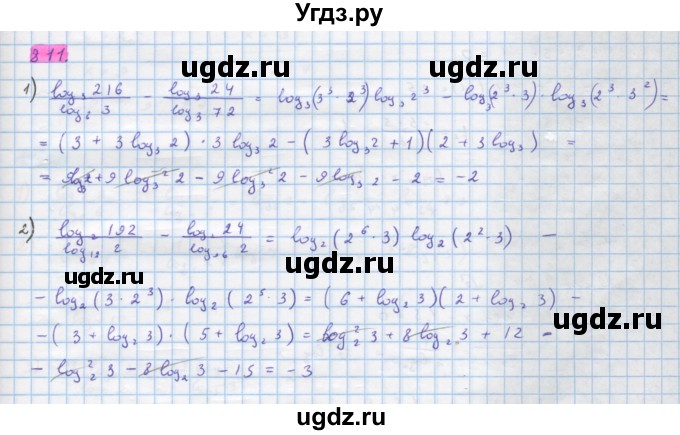 Угдз.ру
811.
ugdz.ru ugdz.ru
1) log₃ 216 / log₈ 3 − log₃ 24 / log₃ 72 = log₃(3³ · 2³) log₃ 2³ − log₃(2³ · 3) · log₃(2³ · 3²) =
= (3 + 3 log₃ 2) · 3 log₃ 2 − (3 log₃ 2 + 1)(2 + 3 log₃) =
ugdz.ru ugdz.ru
= 9 log₃ 2 + 9 log₃² 2 − 9 log₃² 2 − 9 log₃ 2 − 2 = −2
2) log₂ 192 / log₁₂ 2 − log₂ 24 / log₉₆ 2 = log₂(2⁶ · 3) log₂(2² · 3) −
ugdz.ru ugdz.ru
− log₂(3 · 2³) · log₂(2⁵ · 3) = (6 + log₂ 3)(2 + log₂ 3) −
− (3 + log₂ 3) · (5 + log₂ 3) = log₂² 3 + 8 log₂ 3 + 12 −
ugdz.ru ugdz.ru
− log₂² 3 − 8 log₂ 3 − 15 = −3
ugdz.ru